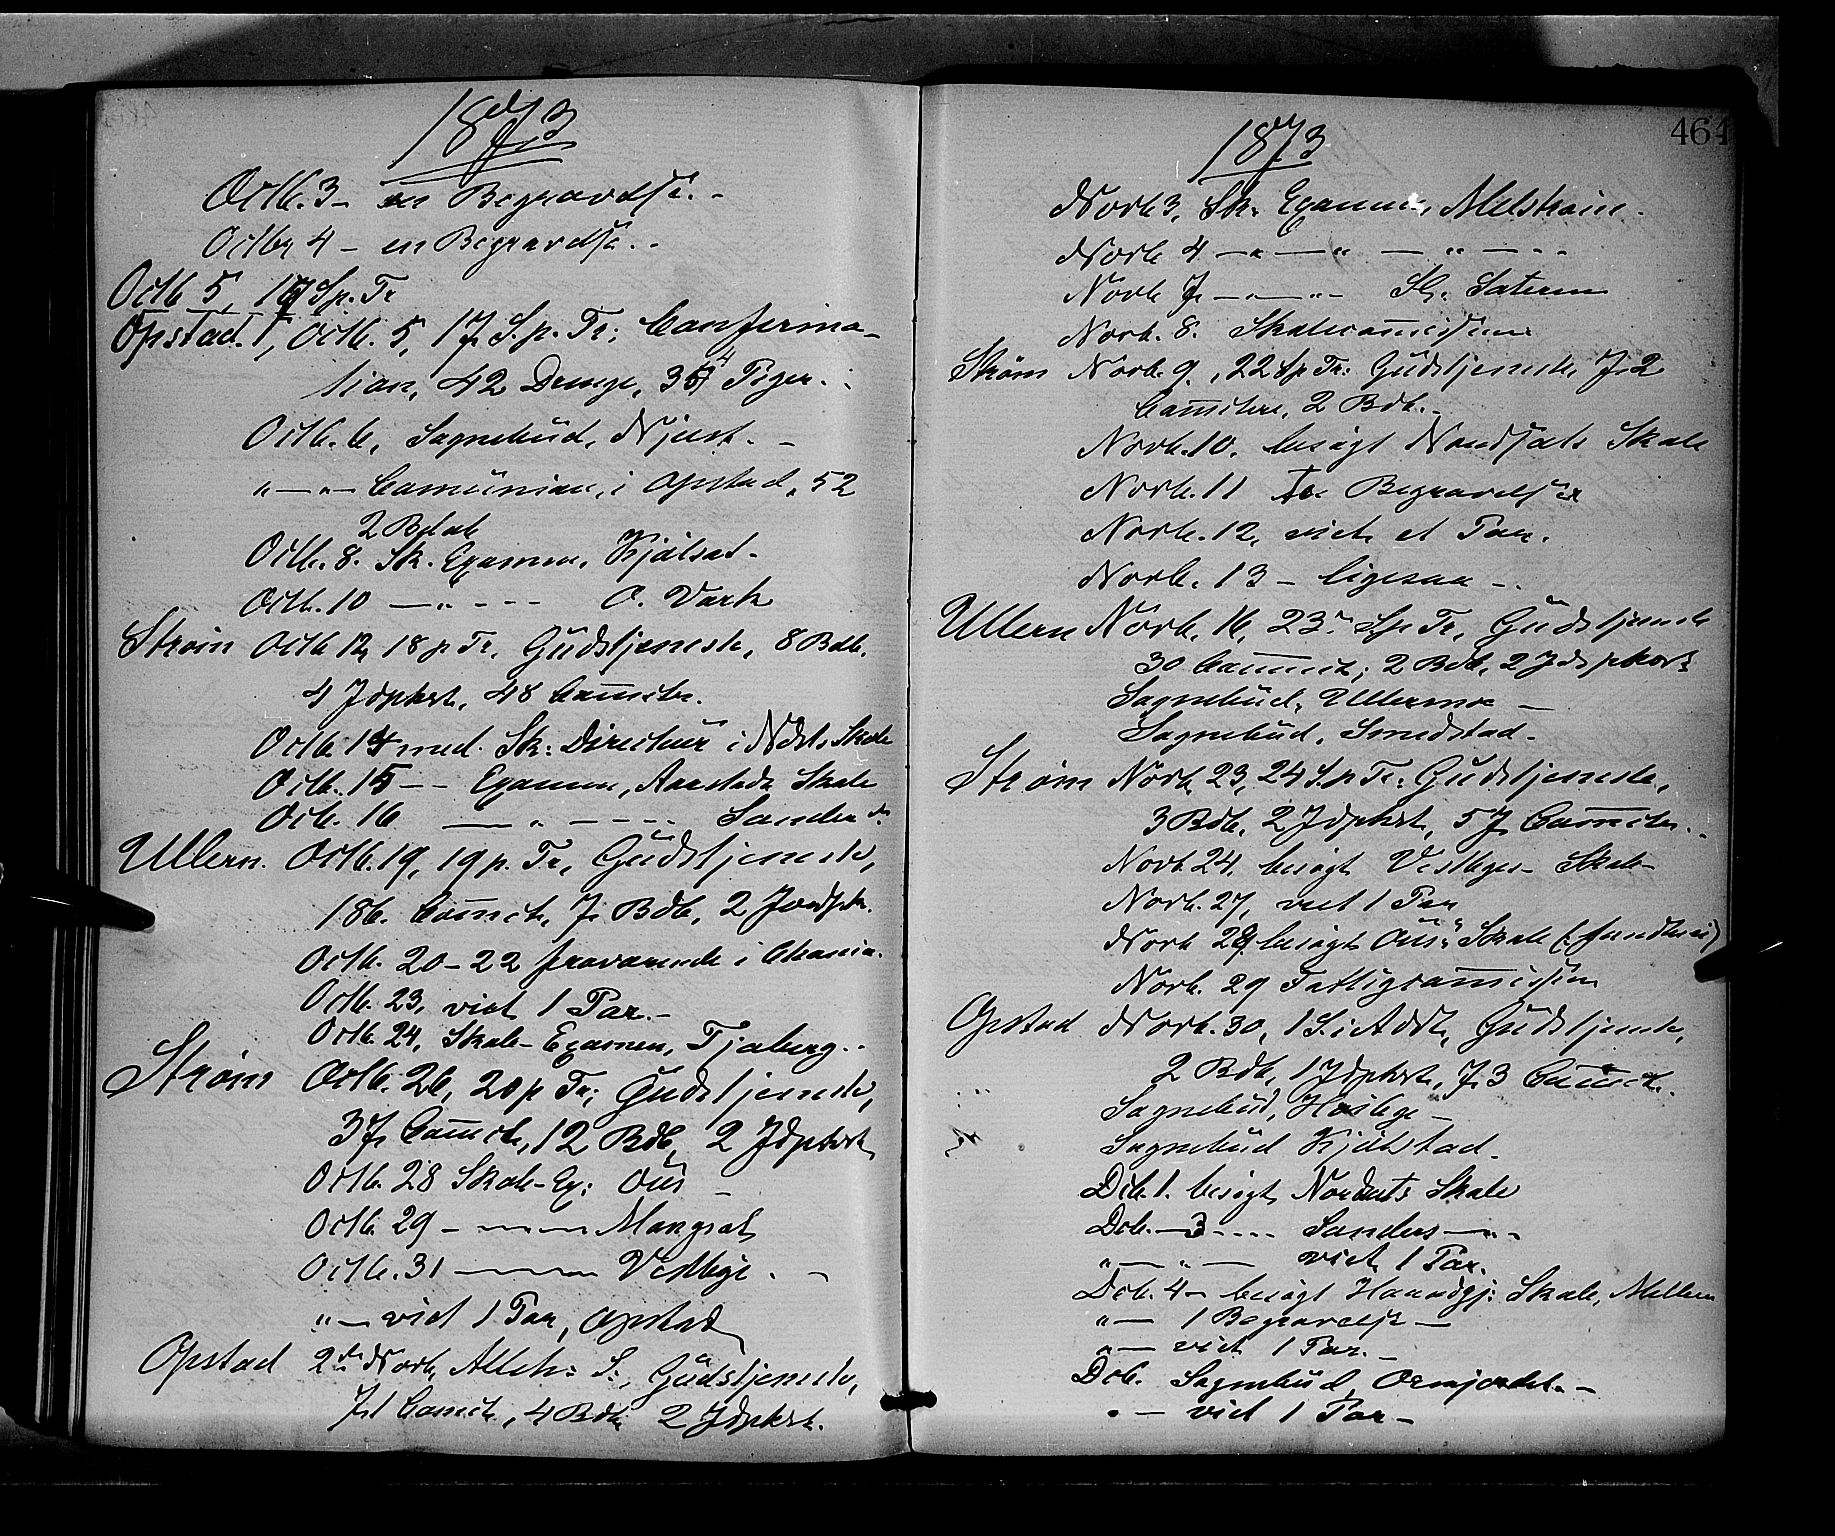 1873
Octb. 3 - en Begravelse. -
Octbr 4 - en Begravelse. -
Octb 5, 17 S. p. Tr
Opstad. 1, Octb. 5, 17 S. p. Tr; Confirma-
tion, 42 Drenge, 34 Piger. -
Octb. 6, Sognebud, Njust. -
" — " — Communion, i Opstad, 52
2 Bdab
Octb. 8. Sk. Examen, Kjølsat. -
Octb. 10 — " - - - O. Værk
Strøm Octb 12, 18 p Tr. Gudstjeneste, 8 Bdb.
4 Jdpkst, 48 Commctr.
Octb. 14 med Sk: Directeur i Ndst. Skole
Octb. 15 - - Examen, Aarstads Skole
Octb. 16 — " - - - - Sander do
Ullern. Octb. 19, 19 p. Tr, Gudstjeneste,
186 Commct, 7 Bdb, 2 Jondpk.
Octb. 20-22 fraværende i Chania.
Octb. 23, viet 1 Par. -
Octb. 24, Skole-Examen, Fjaberg. -
Strøm Octb. 26, 20 p Tr; Gudstjeneste,
37 Commct, 12 Bdb, 2 Jdpkst
Octb. 28 Skole-Ex: Ous -
Octb. 29 - — " — Mangset
Octb. 31 — " — Vestbye. -
" — viet 1 Par, Opstad
Opstad 2den Novb, Alleh: S:, Gudstjeneste,
71 Commct, 4 Bdb 2 Jdpkst.
1873
464
Novb 3, Sk: Examen, Melstrøm.
Novb 4 — " — " — " — - -
Novb 7 — " — " - St. Sæteren
Novb. 8. Skolecommission
Strøm Novb. 9, 22 S p Tr: Gudstjeneste, 72
Commctere, 2 Bdb. -
Novb. 10. besøgt Nordsæts Skole
Novb. 11 To Begravelser
Novb. 12, viet et Par.
Novb. 13 - ligesaa -
Ullern Novb. 16, 23de S. p Tr, Gudstjeneste
30 Commct; 2 Bdb, 2 Jdpkst
Sognebud, Ullermoe -
Sognebud, Smedstad -
Strøm Novb 23, 24 S. p Tr: Gudstjeneste,
3 Bdb, 2 Jdpkst, 57 Commctr. -
Novb 24, besøgt Vestbyes Skole -
Novb. 27, viet 1 Par
Novb 28 besøgt Ous's Skole
Novb. 29 Fattigcommission
Opstad Novb. 30, 1 S. i Advt, Gudstjeneste,
2 Bdb, 1 Jdpkst, 73 Commct.
Sognebud, -
Sognebud Kjølstad -
Dcb. 1. besøgt Nordsæts Skole
Dcb. — 3 - - - Sanders — " -
" — " — viet 1 Par.
Dcb. 4 - besøgt Skole, Mellem
" — 1 Begravelse —
" — viet 1 Par. -
Dcb. Sognebud, -
" — viet 1 Par -